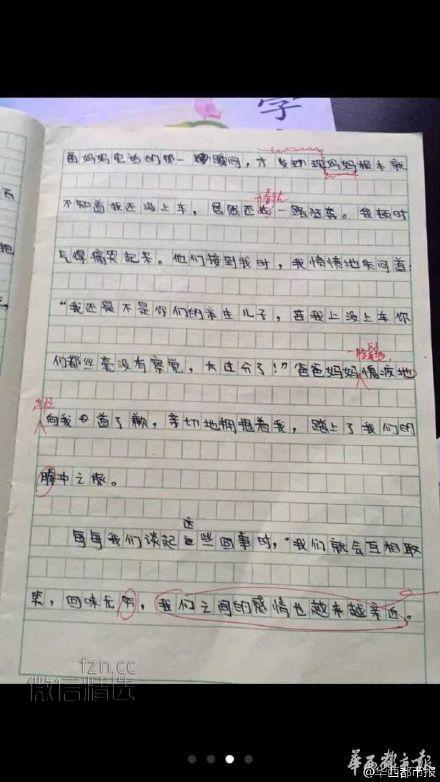 学
面妈妈电话的那一瞬间，才发现妈妈根本就
不知道我还没上车，居然还一路狂奔。我顿时
气得痛哭起来。他们接到我时，我愤愤地质问道：
“我还是不是你们的亲生儿子，连我上没上车你
们都丝毫没有察觉，太过分了！”爸爸妈妈愧疚地
向我道了歉，亲切地拥抱着我，踏上了我们的
腾冲之旅。
每每我们谈起这些回事时，“我们就会互相取
笑，回味无穷，我们之间的感情也越来越亲近。
fzn.cc
微信精选
华西都市报
@华西都市报